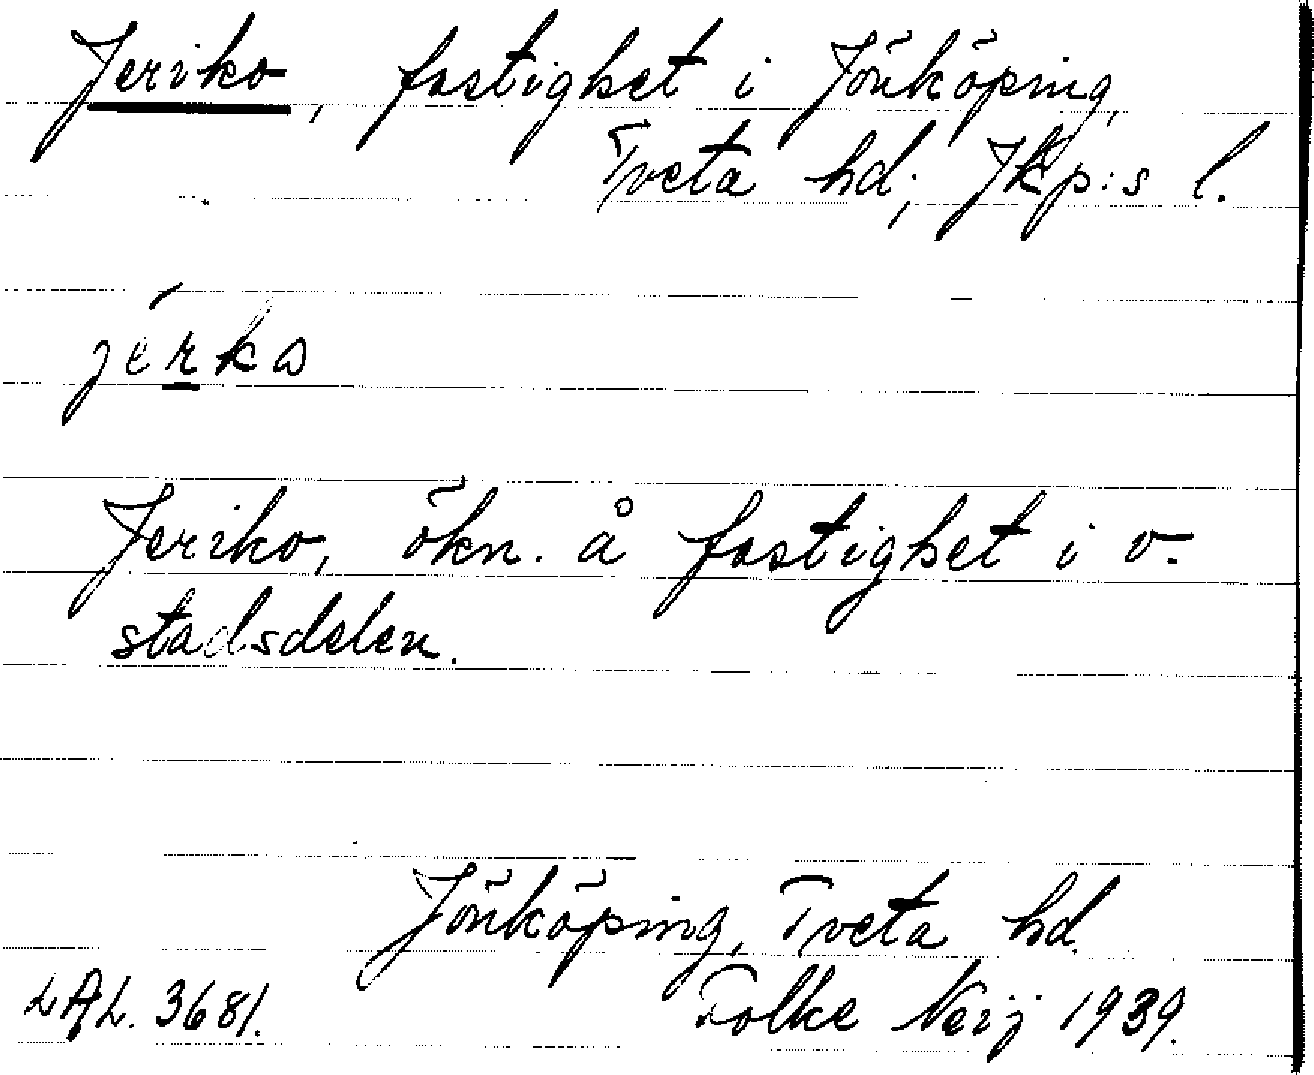 Jeriko, fastighet i Jönköping,
Tveta hd; Jkp:s l.
jérka
Jeriko, ökn. å fastighet i v.
stadsdelen.
Jönköping, Tveta hd.
LAL. 3681. Folke Nerij 1939.